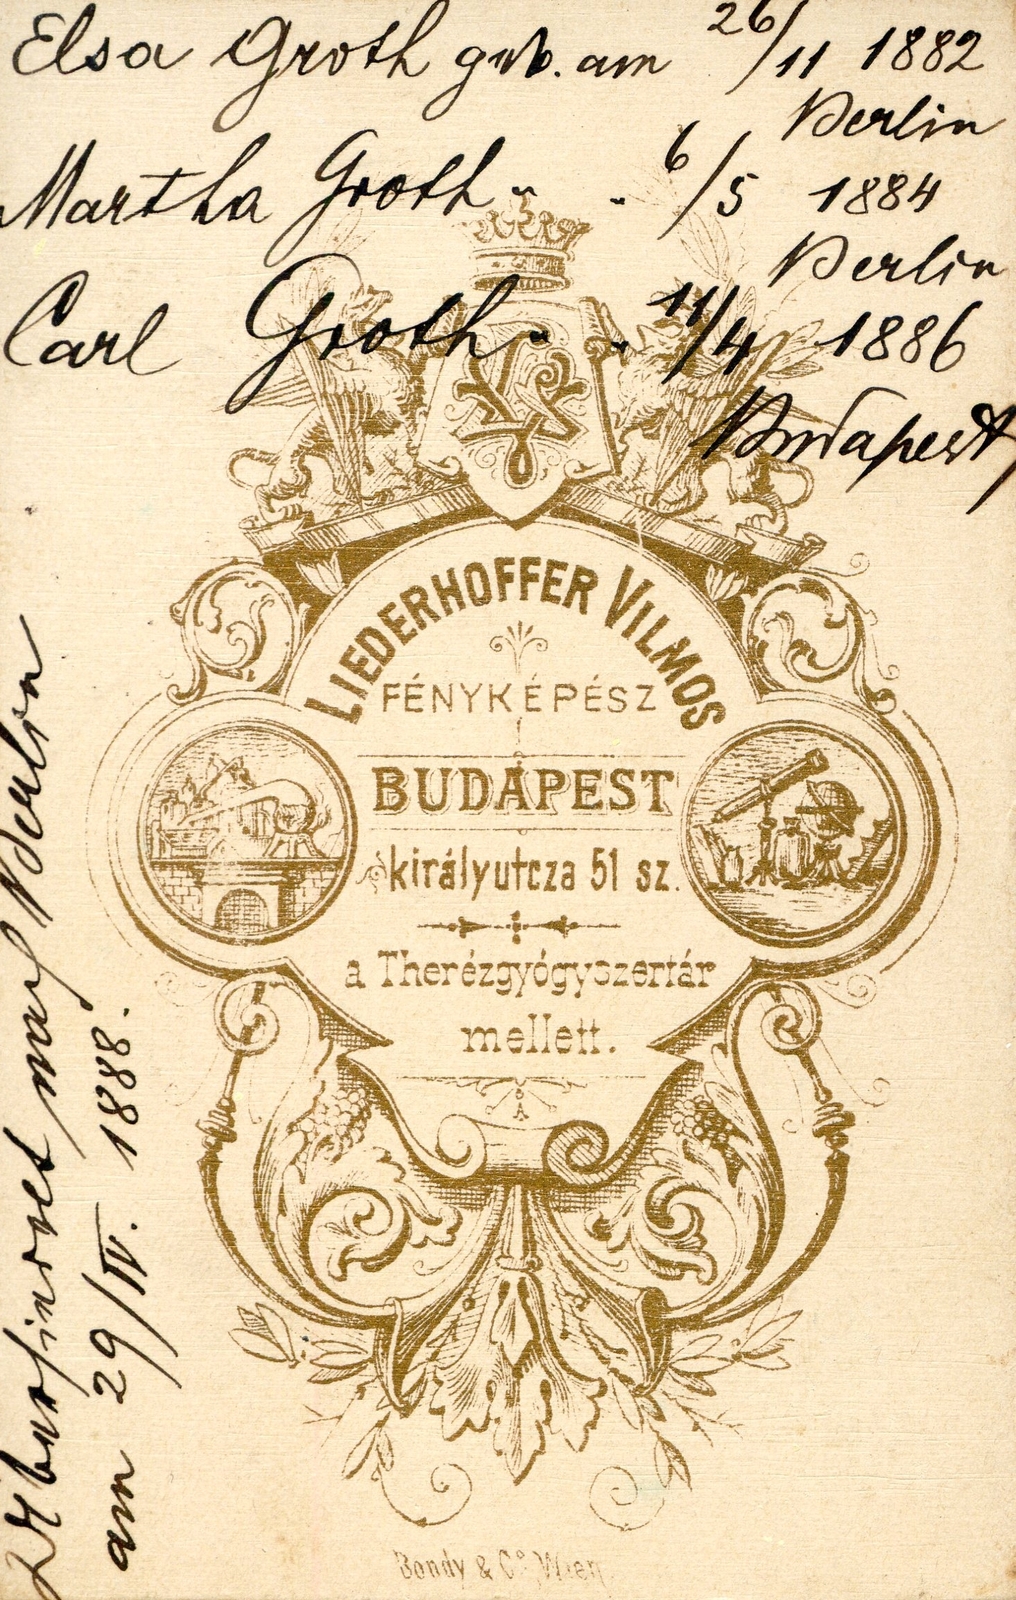 Elsa Groth geb. am 26/11 1882
Berlin
Martha Groth " " 6/5 1884
Berlin
Carl Groth " " 11/4 1886
Budapest
LS
LIEDERHOFFER VILMOS
FÉNYKÉPÉSZ
BUDAPEST
királyutcza 51 sz.
a Therézgyógyszertár
mellett.
Bondy & Co Wien
Übersiedelt nach Berlin
am 29/IV. 1888.